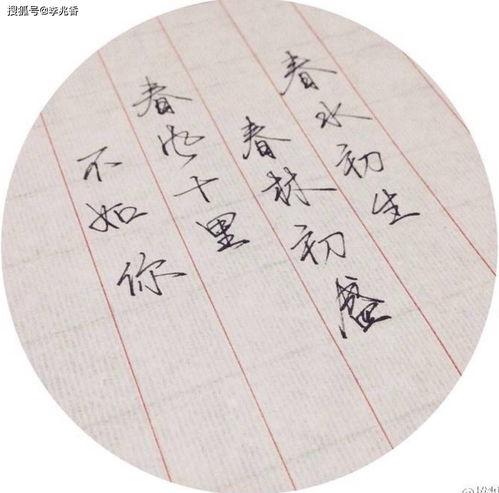 搜狐号@李兆香
春水初生
春林初盛
春风十里
不如你